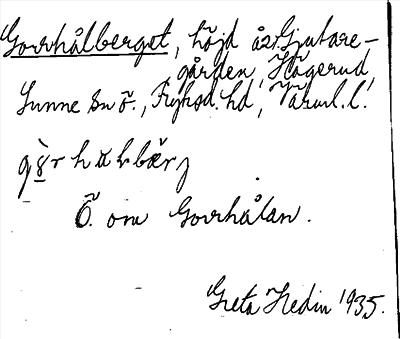 Gorrhålberget, höjd åt Gjutare-
gården, Högerud,
Sunne sn ö., Fryksd. hd, Värml. l.
Ö. om Gorrhålan.
Greta Hedin 1935.